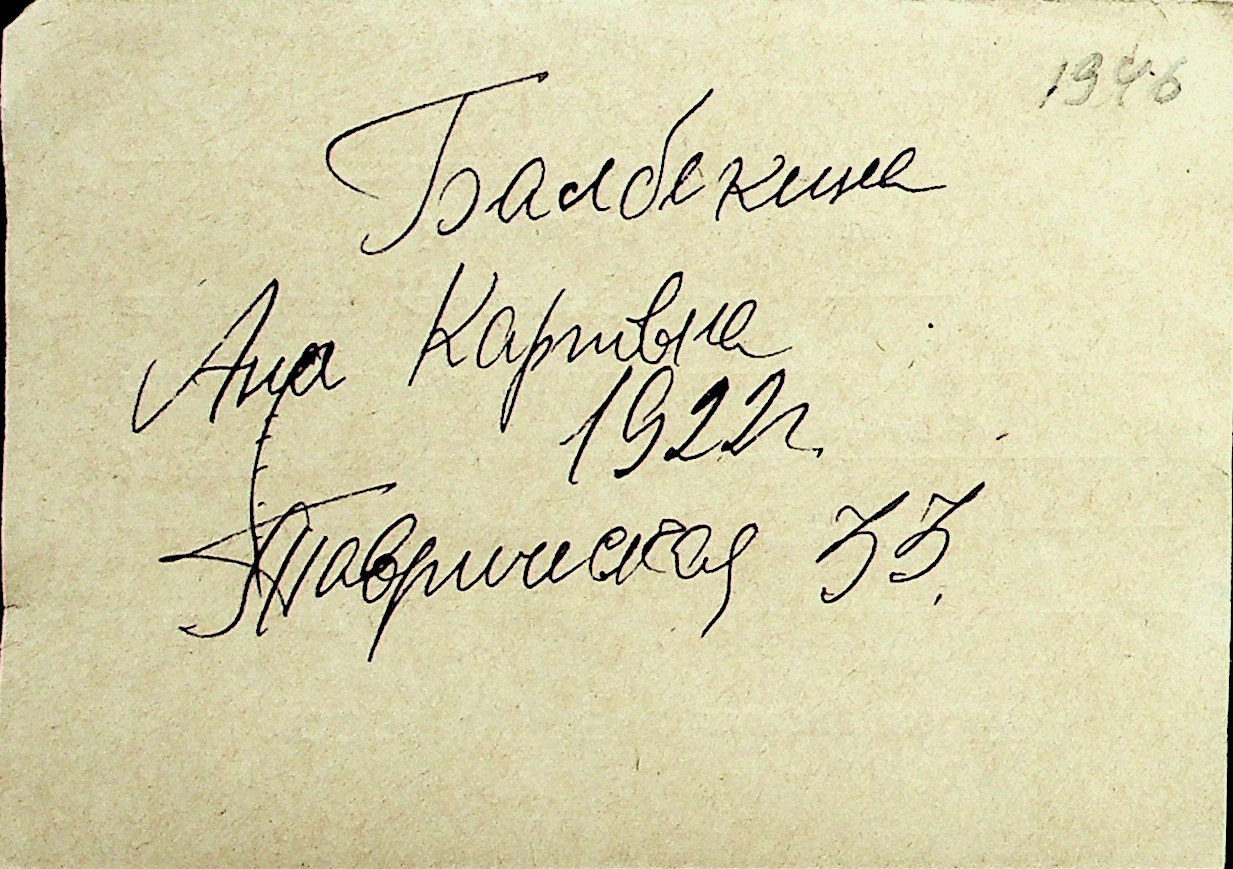 1946
Балбекина
Ана Карпивна
1922г.
Таврическая 33.